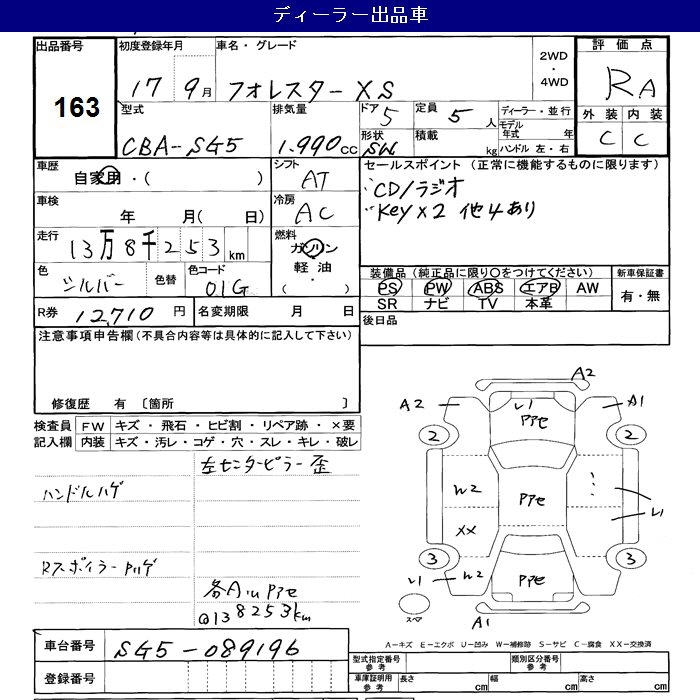 ディーラー出品車
出品番号 163
初度登録年月 17 9月
車名・グレード フォレスター XS
2WD・4WD
評価点 RA
外装 C 内装 C
型式 CBA-SG5
排気量 1.990 CC
ドア 5
定員 5 人
ディーラー・並行
モデル年式 年
ハンドル 左・右
形状 SW
積載 kg
車歴 自家用・( )
シフト AT
セールスポイント (正常に機能するものに限ります)
CD/ラジオ
Key×2 他4あり
車検 年 月( 日)
冷房 AC
走行 13万8千253km
燃料 ガソリン 軽油・( )
色 シルバー 色替 色コード 01G
装備品 (純正品に限り○をつけてください)
PS PW ABS エアB AW
SR ナビ TV 本革
新車保証書 有・無
R券 12,710 円 名変期限 月 日
後日品
注意事項申告欄(不具合内容等は具体的に記入して下さい)
修復歴 有 〔箇所 〕
検査員記入欄
FW キズ・飛石・ヒビ割・リペア跡・×要
内装 キズ・汚レ・コゲ・穴・スレ・キレ・破レ
左センターピラー歪
ハンドルハゲ
Rスポイラー
@138253km
A2
A2 A1
2 2
W2
XX
3 3
W2
A1
スペア
A=キズ E=エクボ U=凹み W=補修跡 S=サビ C=腐食 XX=交換済
車台番号 SG5-089196
登録番号
型式指定番号 参考 類別区分番号 参考
車庫証明用 参考 長さ cm 幅 cm 高さ cm